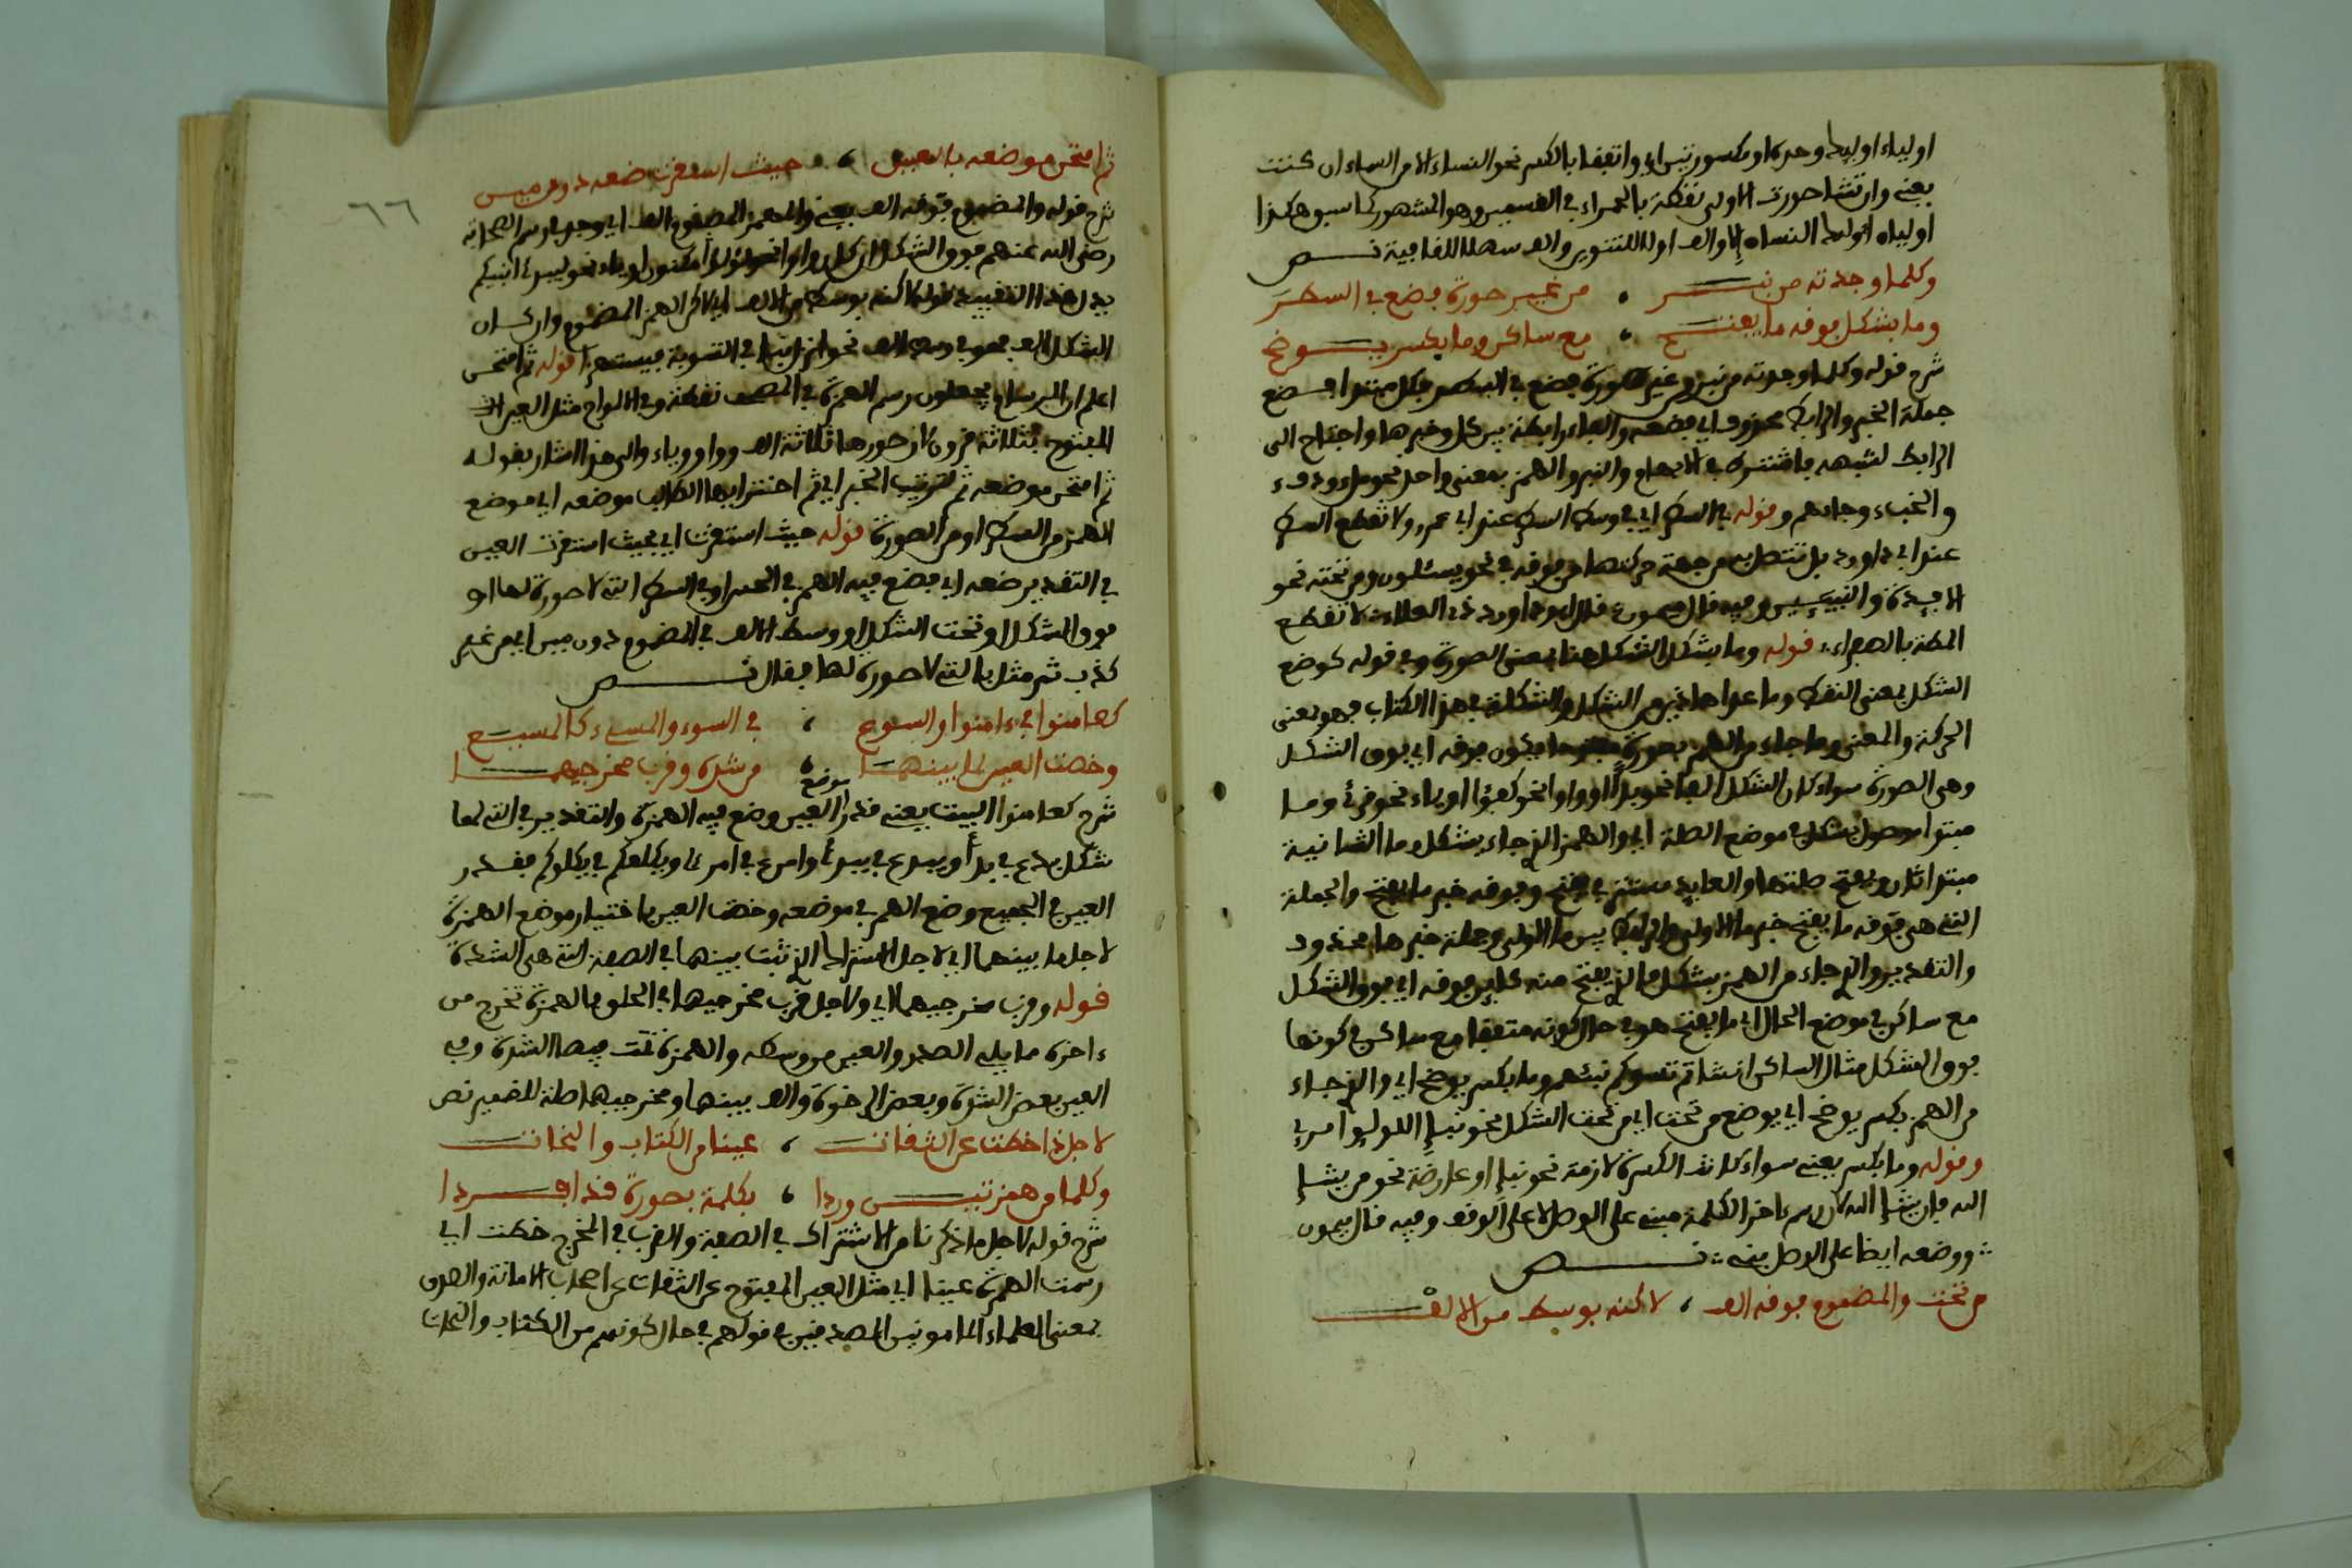 اولياء اوليك وحده او مكسورتين اي واتفقا بالكسر نحو النساء الا من السماء ان كنت
يعني وان تشا صورت الاولى نقطة بالحمراء في القسمين وهو المشهور كما سبق هكذا
اولياء اوليك النساء الا والف اولا للتنوين والف سهلا للقافية نص
وكلما وجدته من نبر ، من غير صورة فضع في السطر
وما بشكل فوقه ما يفتح ، مع ساكن وما بكسر يوضح
شرح قوله وكلما وجدته من نبر من غير صورة فضع في السطر فكل مبتدا فضع
جملة الخبر والرابط محذوف اي فضعه والفاء رابطة بين كل وخبرها واحتاج الى
الرابط لشبهه بالشرط في الابهام والنبر والهمز بمعنى واحد نحو ملء ودفء
والخبء وجاءهم وقوله في السطر اي في وسط السطر عند ابي عمرو ولا تقطع السطر
عند ابي داوود بل تتصل به من جهة حركتها من فوقه في نحو يسئلون ومن تحته نحو
الافدة والنبيين وفيه قال ميمون قال ابو داوود ذي العلاء لا تقطع
المطة بالهجاء قوله وما بشكل الشكل هنا بمعنى الصورة وفي قوله كوضع
الشكل بمعنى النقط وما عدا هاذين من الشكل والشكلة في هذا الكتاب فهو بمعنى
الحركة والمعنى وما جاء من الهمز بصورة فيكون فوقه اي فوق الشكل
وهي الصورة سواء كان الشكل الفا نحو بدا او واوا نحو كفؤا او ياء نحو قرئ وما
مبتدا موصول بشكل في موضع الصلة اي والهمز الذي جاء بشكل وما الثانية
مبتدا ثان ويفتح صلتها والعايد مستتر في يفتح وفوقه خبر ما يفتح والجملة
التي هي فوقه ما يفتح خبر ما الاولى والرابط بين ما الاولى وجملة خبرها محذوف
والتقدير والذي جاء من الهمز بشكل ما الذي يفتح منه كاين فوقه اي فوق الشكل
مع ساكن في موضع الحال اي ما يفتح هو في حال كونه متفقا مع ساكن في كونهما
فوق الشكل مثال الساكن انشاتم تسوكم نبئهم وما بكسر يوضح اي والذي جاء
من الهمز بكسر يوضح اي يوضع من تحت اي من تحت الشكل نحو نبإ اللولؤ امرئ
وقوله وما بكسر يعني سواء كانت الكسرة لازمة نحو نبإ او عارضة نحو من يشإ
الله فإن يشإ الله لان رسم ءاخر الكلمة مبني على الوصل لا على الوقف وفيه قال ميمون
ووضعه ايضا على الوصل بني نص
من تحت والمضموم فوقه الف ، لاكنه بوسط من الالف
ثم امتحن موضعه بالعين ، حيث استقرت ضعه دون مين
٦٦
شرح قوله والمضموم فوقه الف يعني والهمز المضموم الف اي وجد في رسم الصحابة
رضي الله عنهم فوق الشكل ان كان واوا نحو لؤلؤ مكنون او ياء نحو يبدئ انبئكم
بدل هذا التقييد قوله لاكنه بوسط من الالف اي لاكن الهمز المضموم وان كان
الشكل الف فهو في وسط الالف نحو انزل نبا في التسوية يستهزا قوله ثم امتحن
اعلم ان البرسان يجعلون رسم الهمزة في المصحف نقطة وفي الالواح مثل العين
المفتوح بثلاثة قرون لان صورها ثلاثة الف وواو وياء والى هذا اشار بقوله
ثم امتحن موضعه ثم لترتيب الخبر اي ثم اختبر ايها الطالب موضعه اي موضع
الهمز من السطر او من الصورة قوله حيث استقرت اي بحيث استقرت العين
في التقدير ضعه اي فضع فيه الهمز في الحمراء في السطر التي لا صورة لها او
فوق الشكل او تحت الشكل او وسط الالف في المضموم دون مين اي من غير
كذب ثم مثل بالتي لا صورة لها فقال نص
كعامنوا في ءامنوا والسوع ، في السوء والمسيء كالمسيع
وخصت العين لما بينهما ، من شدة وقرب مخرجيهما
موضع
شرح كعامنوا البيت يعني قدر العين وضع فيه الهمزة والتقدير في التي لها
شكل بدع في بدأ ويبدع في يبدئ وامرع في امرئ ويكلعكم في يكلؤكم فقدر
العين في الجميع وضع الهمز في موضعه وخصت العين باختيار موضع الهمزة
لاجل ما بينهما اي لاجل الاشتراك الذي ثبت بينهما في الصفة التي هي الشدة
قوله وقرب مخرجيهما اي ولاجل قرب مخرجيهما في الحلق فالهمزة تخرج من
ءاخره ما يلي الصدر والعين من وسطه والهمزة تمت فيها الشدة وفي
العين بعض الشدة وبعض الرخوة والف بينهما ومخرجيهما صلة للضمير نص
لاجل ذا خطت عن الثقات ، عينا من الكتاب والنحات
وكلما من همزتين وردا ، بكلمة بصورة قد افردا
شرح قوله لاجل ما ذكرنا من الاشتراك في الصفة والقرب في المخرج خطت اي
رسمت الهمزة عينا اي مثل العين المفتوح عن الثقات عن اصحاب الامانة والصدق
بمعنى العلماء المامونين المصدقين في قولهم في حال كونهم من الكتاب والنحات